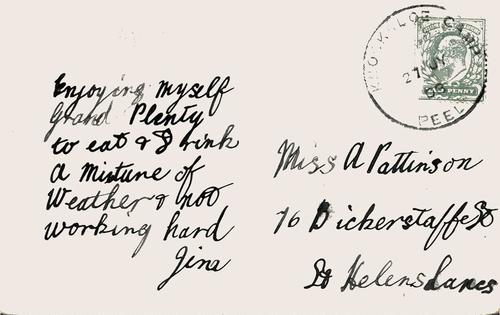 KNOCKALOE CAMP
27 JY
PEEL
PENNY
Enjoying myself
Grand Plenty
to eat & Drink
a Mixture of
Weather & not
working hard
Jina
Miss A Pattinson
76 Bickerstaffe St
St Helens Lancs